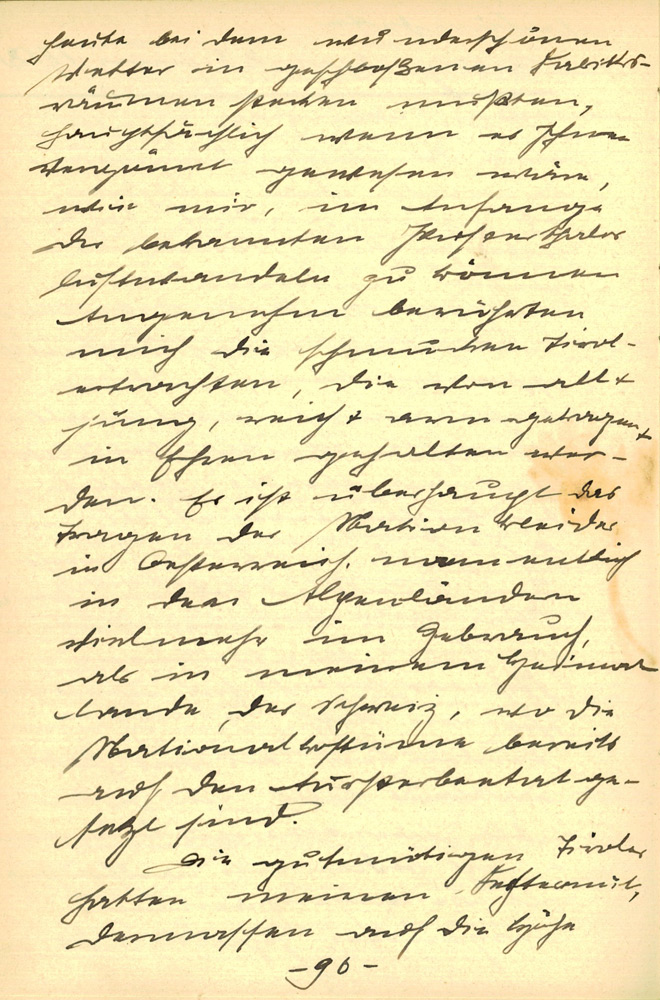 heute bei dem wunderschönen
Wetter in geschloßenen Fabriks-
räumen stecken mußten,
hauptsächlich wenn es Ihnen
vergönnt gewesen wäre,
wie mir, im Anfange
des bekannten
lustwandeln zu können
Angenehm berührten
mich die schmucken Tirol-
ertrachten, die von alt +
jung, reich + arm getragen +
in Ehren gehalten wer-
den. Es ist überhaupt das
tragen der Nationkleider
in Oesterreich, namentlich
in den Alpenländern
vielmehr im Gebrauch,
als in meinem Heimat
lande, der Schweiz, wo die
Nationalkostüme bereits
auf den Aussterbeetat ge-
setzt sind.
Die gutmütigen Tiroler
hatten meinen
dermassen auf die Höhe
- 96 -